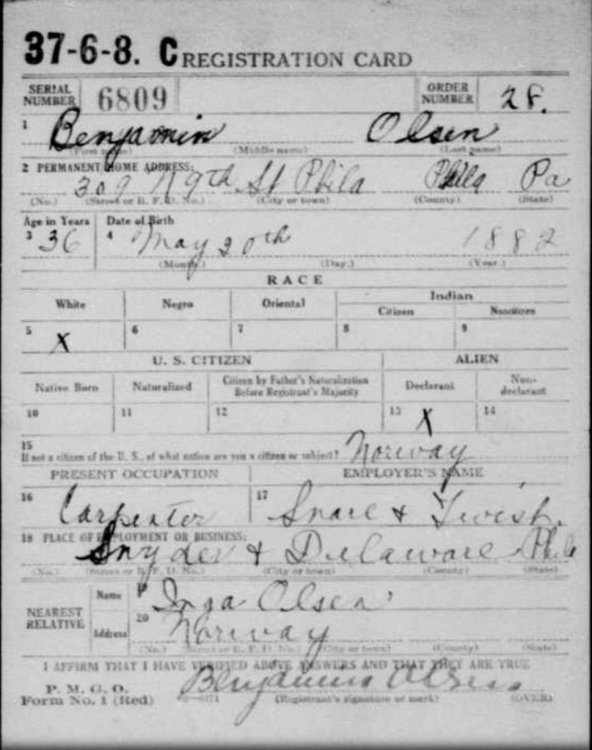 37-6-8. C REGISTRATION CARD
SERIAL NUMBER 6809 ORDER NUMBER 28.
1 Benjamin Olsen
(First name) (Middle name) (Last name)
2 PERMANENT HOME ADDRESS:
309 N 9th St Phila Phila Pa
(No.) (Street or R. F. D. No.) (City or town) (County) (State)
Age in Years Date of Birth
3 36 4 May 20th 1882
(Month.) (Day.) (Year.)
RACE
White Negro Oriental Indian
Citizen Noncitizen
5 X 6 7 8 9
U. S. CITIZEN ALIEN
Native Born Naturalized Citizen by Father's Naturalization Before Registrant's Majority Declarant Non-declarant
10 11 12 13 X 14
15
If not a citizen of the U. S., of what nation are you a citizen or subject? Norway
PRESENT OCCUPATION EMPLOYER'S NAME
16 Carpenter 17 Snare & Twist.
18 PLACE OF EMPLOYMENT OR BUSINESS:
Snyder & Delaware Phila
(No.) (Street or R. F. D. No.) (City or town) (County) (State)
NEAREST RELATIVE Name 19 Inga Olsen
Address 20 Norway
(No.) (Street or R. F. D. No.) (City or town) (County) (State)
I AFFIRM THAT I HAVE VERIFIED ABOVE ANSWERS AND THAT THEY ARE TRUE
P. M. G. O.
Form No. 1 (Red) Benjamin Olsen
(Registrant's signature or mark) (OVER)